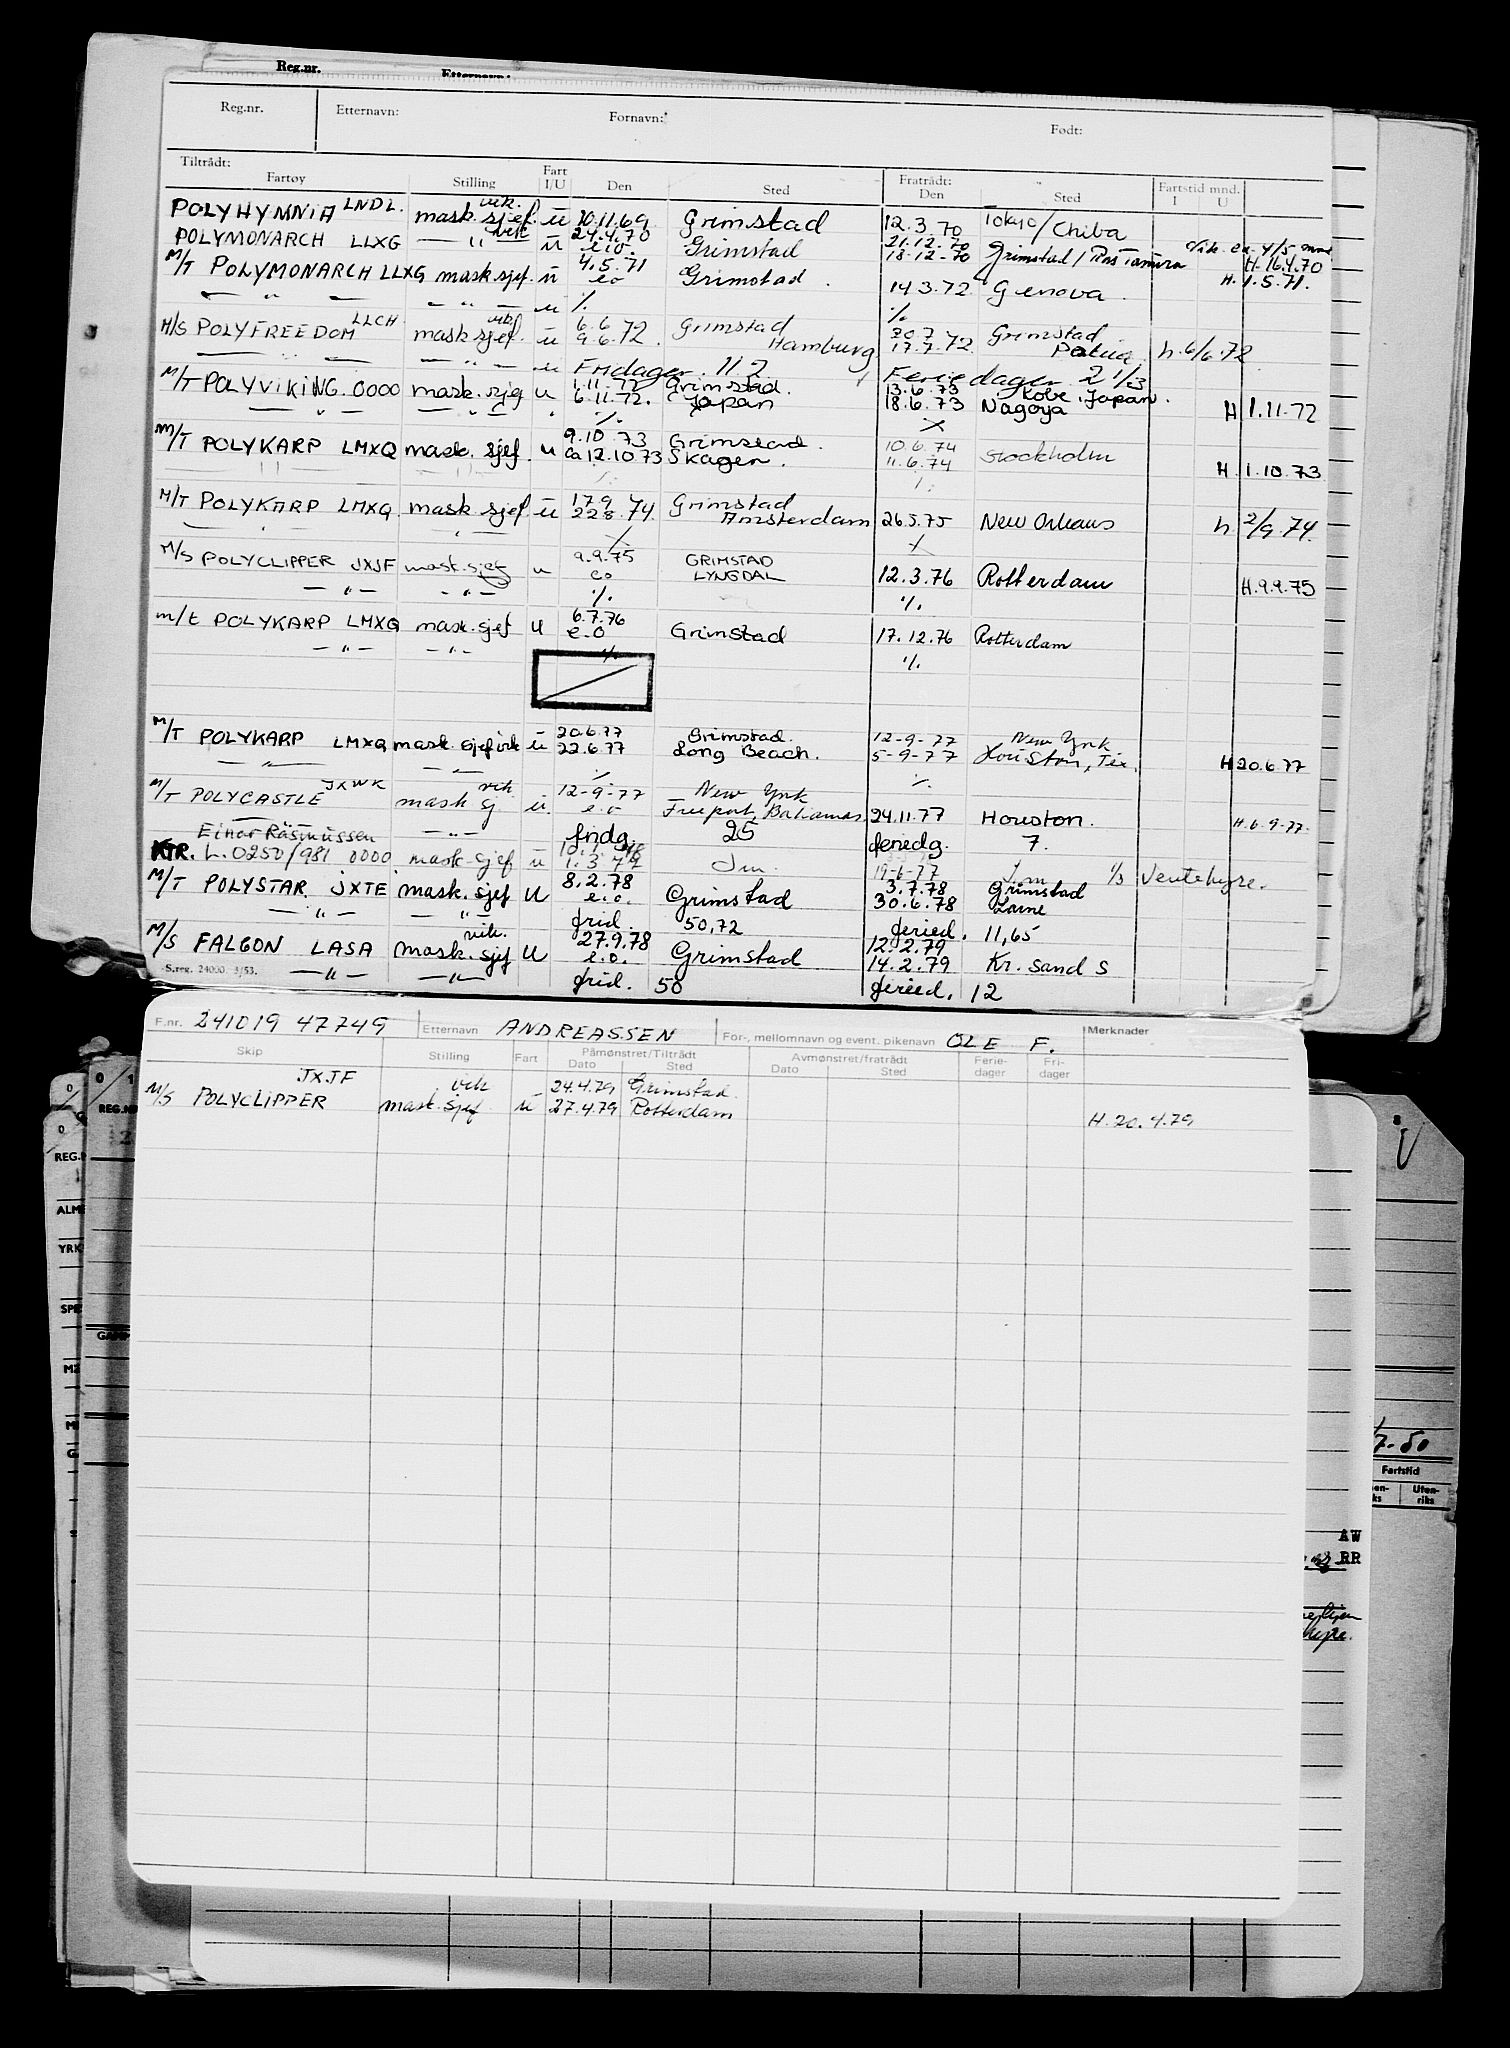 Reg.nr. Etternavn:
Reg.nr. Etternavn: Fornavn: Født:
Tiltrådt: Fartøy Stilling Fart I/U Den Sted Fratrådt: Den Sted Fartstid mnd. I U
POLYHYMNIA LNDL. mask.sjef. vik. u 20.11.69 Grimstad 12.3.70 Tokyo/Chiba
POLYMONARCH LLXG — " — vik u 24.4.70 e.o. Grimstad 21.12.70 18-12-70 Grimstad / Ras Tanura H. 16.4.70
M/T POLYMONARCH LLXG mask.sjef. u 4.5.71 eo Grimstad 14.3.72 Genova H. 1.5.71.
— " — — " — u % %
M/S POLYFREEDOM LLCH mask.sjef. vik u 6.6 9.6.72. Grimstad Hamburg 20.7 17.7.72 Grimstad h. 6/6.72
— " — — " — u Fridager. 11 2 Feriedager 2 1/3
M/T POLYVIKING. 0000 mask.sjef u 1.11.72 6.11.72. Grimstad. Japan 13.6.73 18.6.73 Kobe, Japan. Nagoya H 1.11.72
— " — — " — % %
M/T POLYKARP LMXQ mask. sjef. u 9.10.73 ca 12.10.73 Grimstad. Skagen. 10.6.74 11.6.74 Stockholm H. 1.10.73
M/T POLYKARP LMXQ. mask.sjef. u 17.9 22.8.74. Grimstad Amsterdam 26.5.75 New Orleans h 2/9.74.
— " — — " — % %
M/S POLYCLIPPER JXJF mask.sjef u 9.9.75 eo GRIMSTAD LYNGDAL 12.3.76 Rotterdam H.9.9.75
— " — — " — % %
m/t POLYKARP LMXQ mask.sjef u 6.7.76 e.o Grimstad 17.12.76 Rotterdam
— " — — " — % %
M/T POLYKARP LMXQ mask.sjef vik u 20.6.77 22.6.77 Grimstad. Long Beach. 12-9-77 5-9-77 New York Houston, Tex. H 20.6.77
— " — — " — % %
M/T POLYCASTLE JXWK mask sj. vik u. 12-9-77 e.o New York Freeport, Bahamas 24.11.77 Houston. H.6-9-77.
— " — fridg. 25 feriedg. 7.
Einar Rasmussen
KTR. L.0250/981 0000 mask-sjef u 19-6-77 1/3 Ventehyre.
M/T POLYSTAR JXTE mask.sjef U 8.2.78 e.o. Grimstad 3.7.78 30.6.78 Grimstad Larne
— " — — " — frid. 50,72 feried. 11,65
M/S FALCON LASA mask.sjef vik. U 27.9.78 e.o. Grimstad 12.2.79 14.2.79 Kr. sand S
S.reg. 24000. 3/53. — " — — " — frid. 50 feried. 12
F.nr. 241019 47749 Etternavn ANDREASSEN For-, mellomnavn og event. pikenavn OLE F. Merknader
Skip Stilling Fart Påmønstret/Tiltrådt Dato Sted Avmønstret/fratrådt Dato Sted Ferie-dager Fri-dager
M/S POLYCLIPPER JXJF mask.sjef vik u 24.4.79 27.4.79 Grimstad. Rotterdam H. 20.4.79
REG.NR
REG.N
ALM
YRK
SPE
7-50
Fartstid
Uten-riks
AW
RR